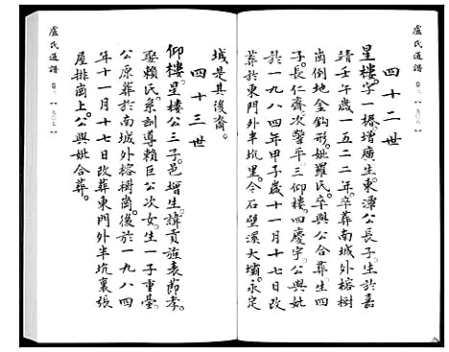 盧氏通譜
四十二世
星樓。字一橋。增廣生。東潭公長子。生於嘉
靖壬午歲一五二二年。卒葬南城外榕樹
崗倒地金鈎形。妣羅氏。卒與公合葬。生四
子。長仁齋。次擎平。三仰樓。四慶宇。公與妣
於一九八四年甲子歲十一月十七日改
葬於東門外半坑里。今石壁溪大壩。永定
盧氏通譜
城是其後裔。
四十三世
仰樓。星樓公三子。邑增生。諱貢旌表節孝。
娶賴氏。系副導賴巨公次女。生一子重臺。
公原葬於南城外榕樹崗。後於一九八四
年十一月十七日改葬東門外半坑裏張
屋排崗上。公與妣合葬。